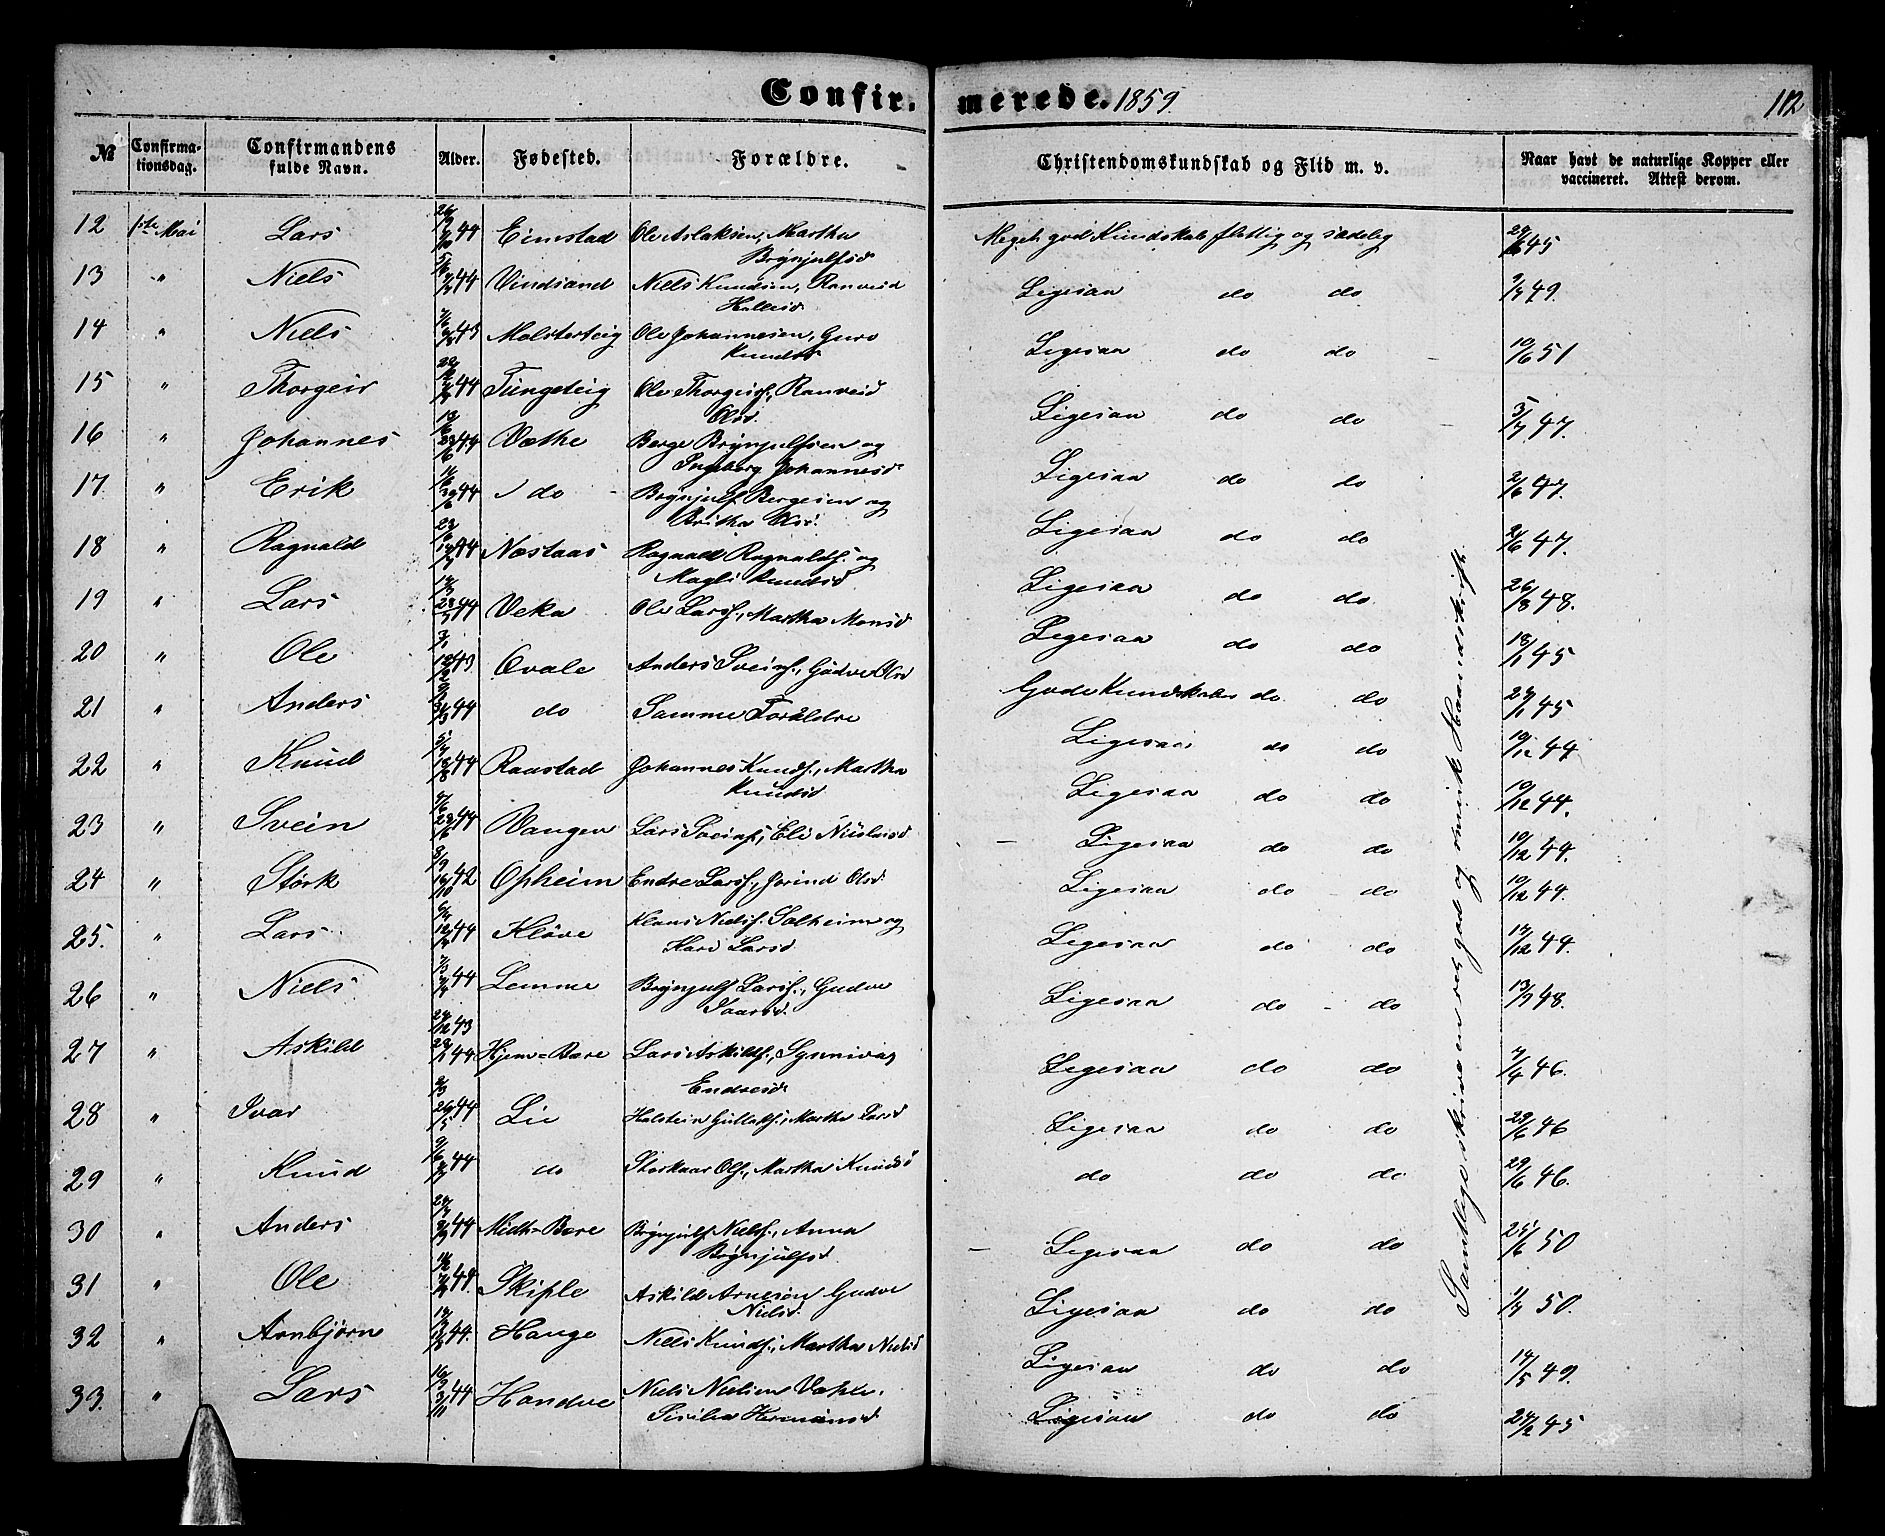 Confirmerede. 1859. 112
№ Confirmationsdag. Confirmandens fulde Navn. Alder. Fødested. Forældre. Christendomskundskab og Flid m. v. Naar havt de naturlige Kopper eller vaccineret. Attest derom.
12 1ste Mai Lars 44 Eimstad Ole Aslaksen, Martha Brynjulfsd Meget god Kundskab flittig og sædelig 45
13 " Niels 44 Vindsand Niels Knudsen, Ranveid Hallesd Ligesaa do do 49.
14 " Niels 43 Molsterteig Ole Johannesen, Guro Knudsd Ligesaa do do 10/6 51
15 " Thorgeir 44 Tungeteig Ole Thorgeirs., Ranveid Olsd. Ligesaa do do 3/7 47.
16 " Johannes 44 Væthe Berge Brynjulfsen og Ingeborg Johannesd Ligesaa do do 2/6 47.
17 " Erik 44 do Brynjulf Bergesen og Britha Olsd. Ligesaa do do 2/6 47.
18 " Ragnald 44 Næstaas Ragnald Ragnalds. og Magli Knudsd Ligesaa do do 26/8 48.
19 " Lars 44 Veka Ole Larss., Martha Monsd Ligesaa do do 18/1 45
20 " Ole 43 Qvale Anders Sveins., Gudve Olsd Gode Kundskaber do do 45
21 " Anders 44 do Samme Forældre Ligesaa do do 19/12 44
22 " Knud 44 Raastad Johannes Knuds., Martha Knudsd Ligesaa do do 19/12 44.
23 " Svein 44 Vangen Lars Sveins., Eli Nielsd Ligesaa do do 19/12 44.
24 " Størk 42 Opheim Endre Larss., Jorind Olsd. Ligesaa do do 19/12 44.
25. " Lars 44 Kløve Klaus Niels. Solheim og Kari Larsd. Ligesaa do do 44.
26 " Niels 44 Lemme Brynjulf Larss., Gudve Ivarsd. Ligesaa do do 13/9 48.
27 " Askild 43 44 Hjem-Bære Lars Askilds., Synniva Endresd Ligesaa do do 46.
28 " Ivar 44 Lie Halstein Gulleiks., Martha Larsd Ligesaa do do 29/6 46
29 " Knud 44 do Storkaar Ols., Martha Knudsd do do do 29/6 46.
30 " Anders 44 Midt-Bære Brynjulf Niels., Anna Brynjulfsd. Ligesaa do do 25/6 50
31 " Ole 44. Skiple Askild Arnesen Gudve Nielsd. Ligesaa do do 50.
32 " Arnbjørn 44. Hauge Niels Knuds., Martha Nielsd Ligesaa do do 14/5 49.
33. " Lars 44 Handve Niels Nielsen Væthe, Sesilia Hermundsd Ligesaa do do 45
Samtlige skrive en god og Haandskrift.